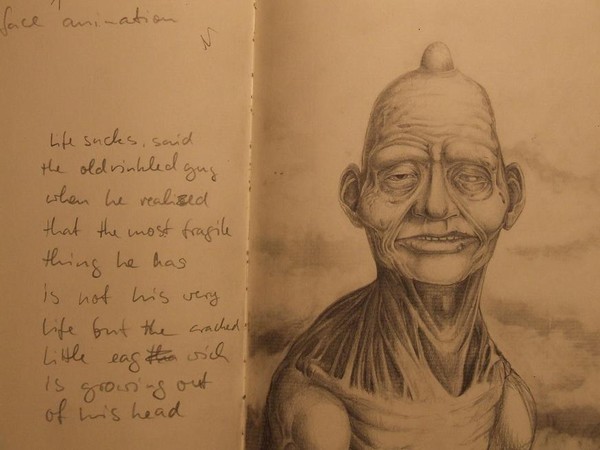 face animation
Life sucks, said
the old rinkled guy
when he realized
that the most fragile
thing he has
is not his very
life but the cracked
little eag wich
is growing out
of his head